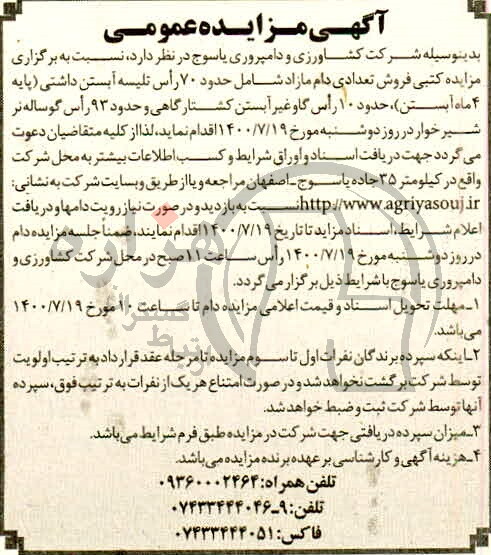 آگهی مزایده عمومی
بدینوسیله شرکت کشاورزی و دامپروری یاسوج در نظر دارد، نسبت به برگزاری
مزایده کتبی فروش تعدادی دام مازاد شامل حدود ۷۰ رأس تلیسه آبستن داشتی (پایه
۴ ماه آبستن)، حدود ۱۰ رأس گاو غیر آبستن کشتارگاهی و حدود ۹۳ رأس گوساله نر
شیر خوار در روز دوشنبه مورخ ۱۴۰۰/۷/۱۹ اقدام نماید، لذا از کلیه متقاضیان دعوت
می گردد جهت دریافت اسناد و اوراق شرایط و کسب اطلاعات بیشتر به محل شرکت
واقع در کیلومتر ۳۵ جاده یاسوج - اصفهان مراجعه و یا از طریق وبسایت شرکت به نشانی:
http://www.agriyasouj.ir نسبت به بازدید و در صورت نیاز رویت دامها و دریافت
اعلام شرایط، اسناد مزاید تا تاریخ ۱۴۰۰/۷/۱۹ اقدام نمایند، ضمناً جلسه مزایده دام
در روز دوشنبه مورخ ۱۴۰۰/۷/۱۹ رأس ساعت ۱۱ صبح در محل شرکت کشاورزی و
دامپروری یاسوج با شرایط ذیل برگزار می گردد.
۱- مهلت تحویل اسناد و قیمت اعلامی مزایده دام تا ساعت ۱۰ مورخ ۱۴۰۰/۷/۱۹
می باشد.
۲- اینکه سپرده برندگان نفرات اول تا سوم مزایده تا مرحله عقد قرارداد به ترتیب اولویت
توسط شرکت برگشت نخواهد شد و در صورت امتناع هر یک از نفرات به ترتیب فوق، سپرده
آنها توسط شرکت ثبت و ضبط خواهد شد.
۳- میزان سپرده دریافتی جهت شرکت در مزایده طبق فرم شرایط می باشد.
۴- هزینه آگهی و کارشناسی بر عهده برنده مزایده می باشد.
تلفن همراه: ۰۹۳۶۰۰۰۲۴۶۴
تلفن: ۹-۰۷۴۳۳۴۴۴۰۴۶
فاکس: ۰۷۴۳۳۴۴۴۰۵۱
هزاره